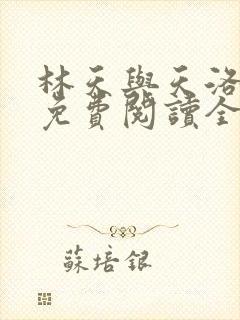 林天與天洛
免費閱讀全
蘇培銀